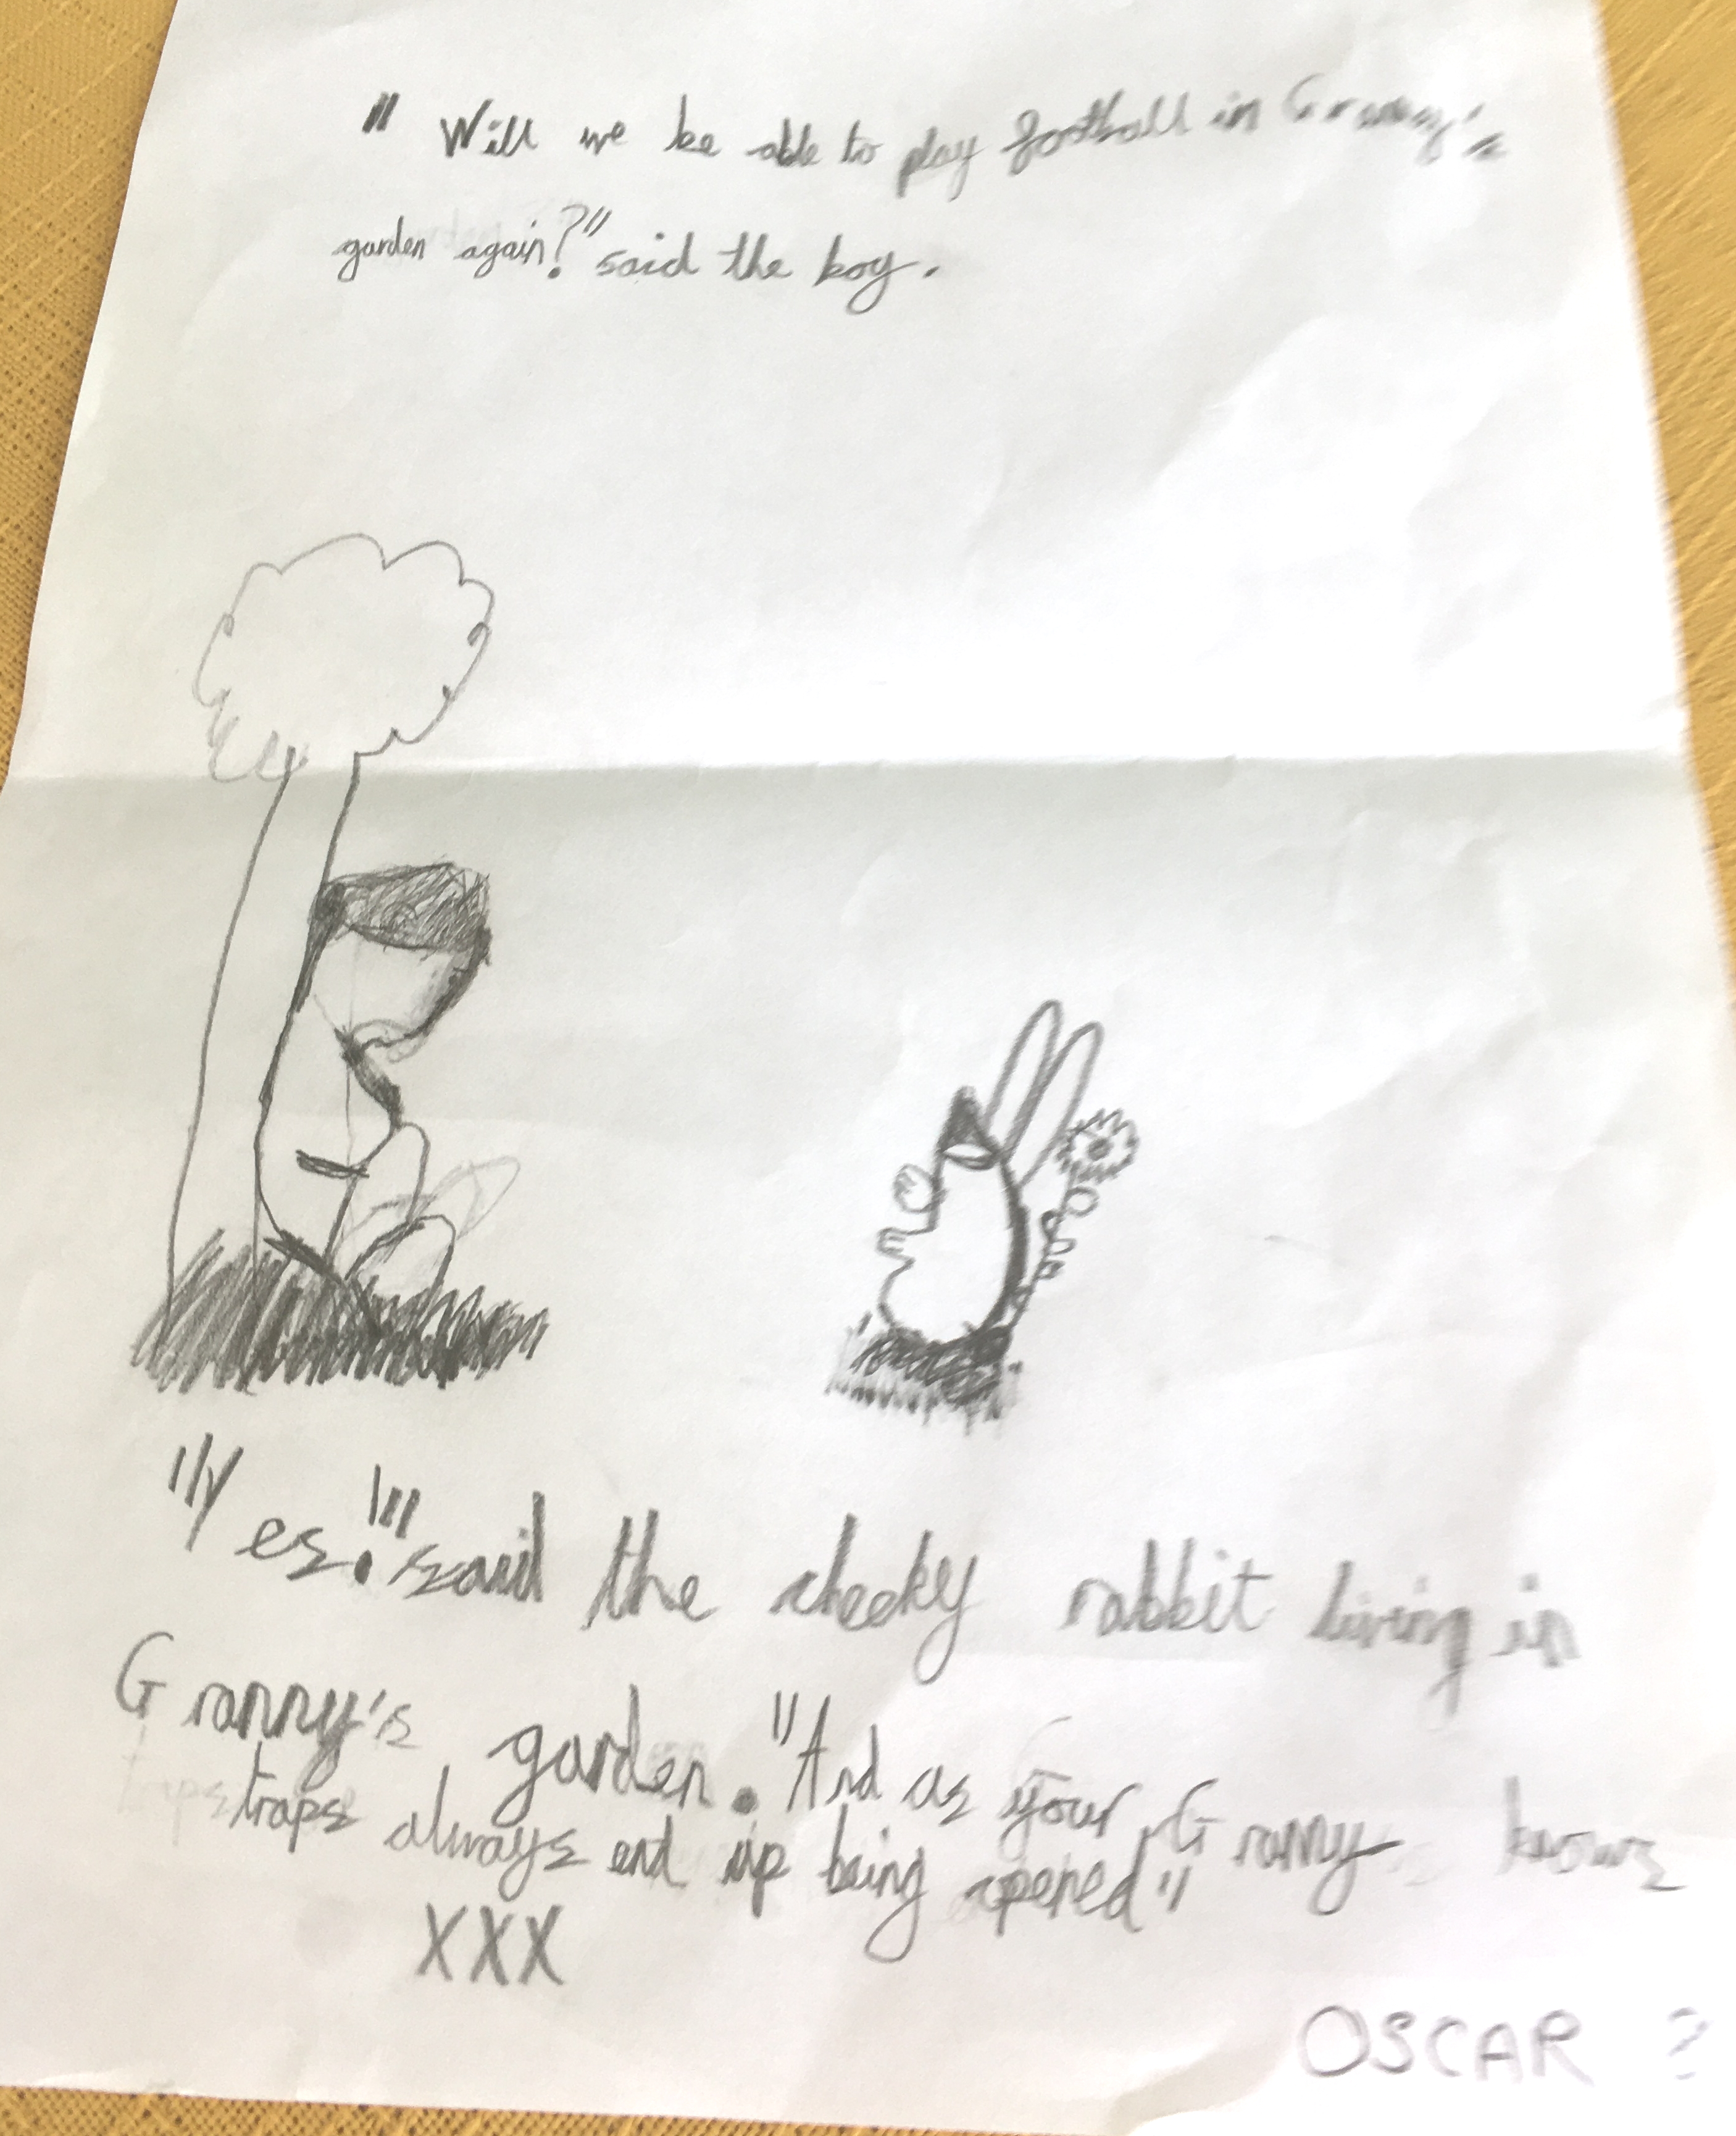 " Will we be able to play football in Granny's
garden again?" said the boy.
"Yes!" said the cheeky rabbit living in
Granny's garden. "And as your Granny knows
traps always end up being opened"
XXX
OSCAR ?